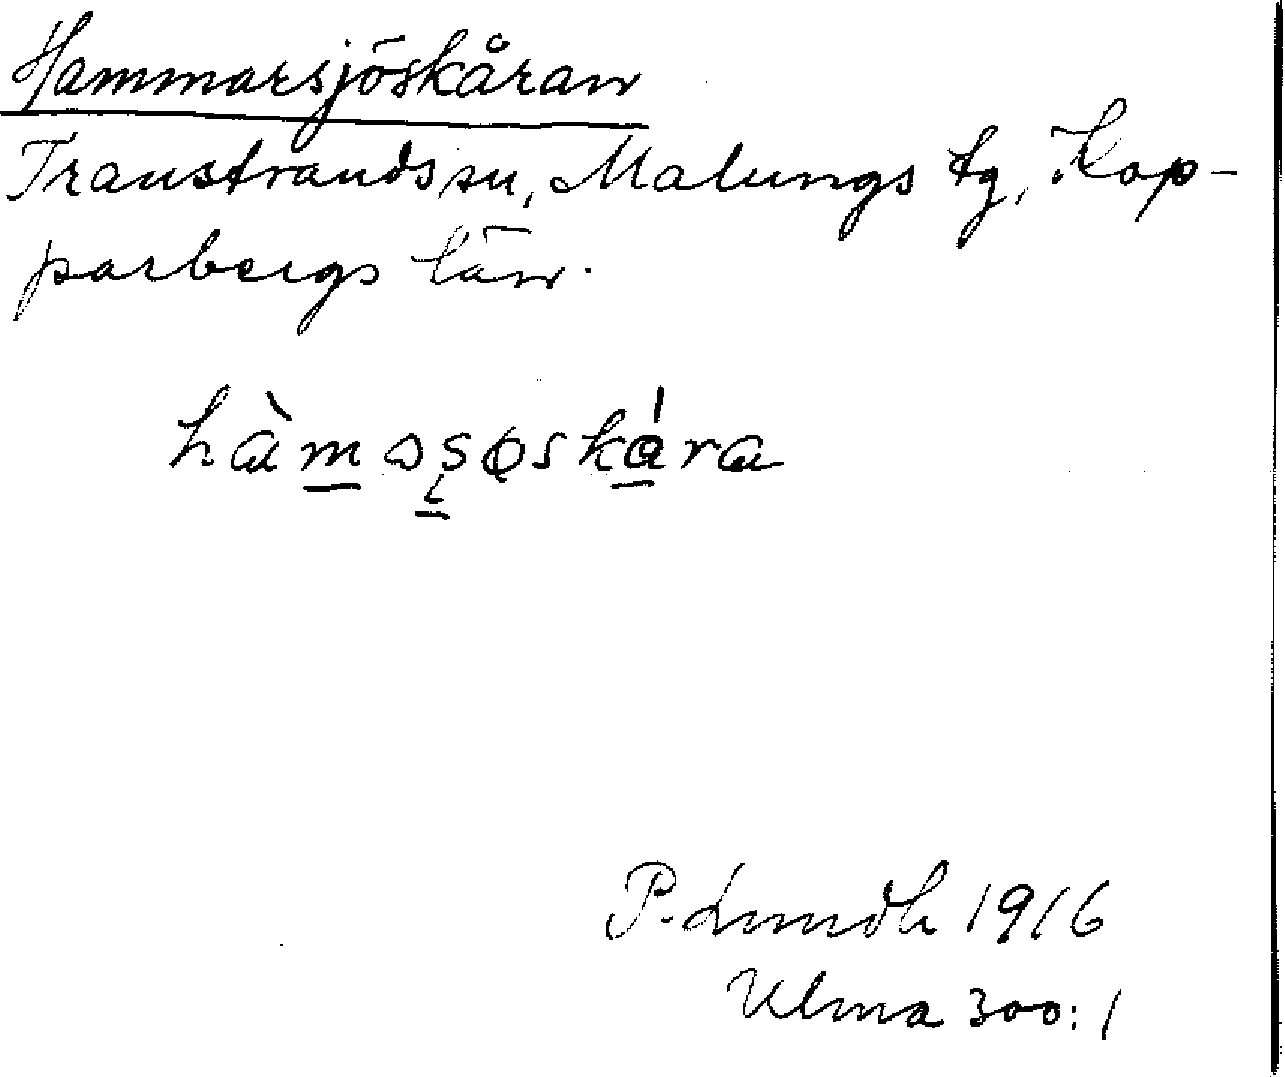 Hammarsjöskåran
Transtrands sn, Malungs tg, Kop-
parbergs län.
hàmɔşøskára
P. Lundh 1916
Ulma 300:1